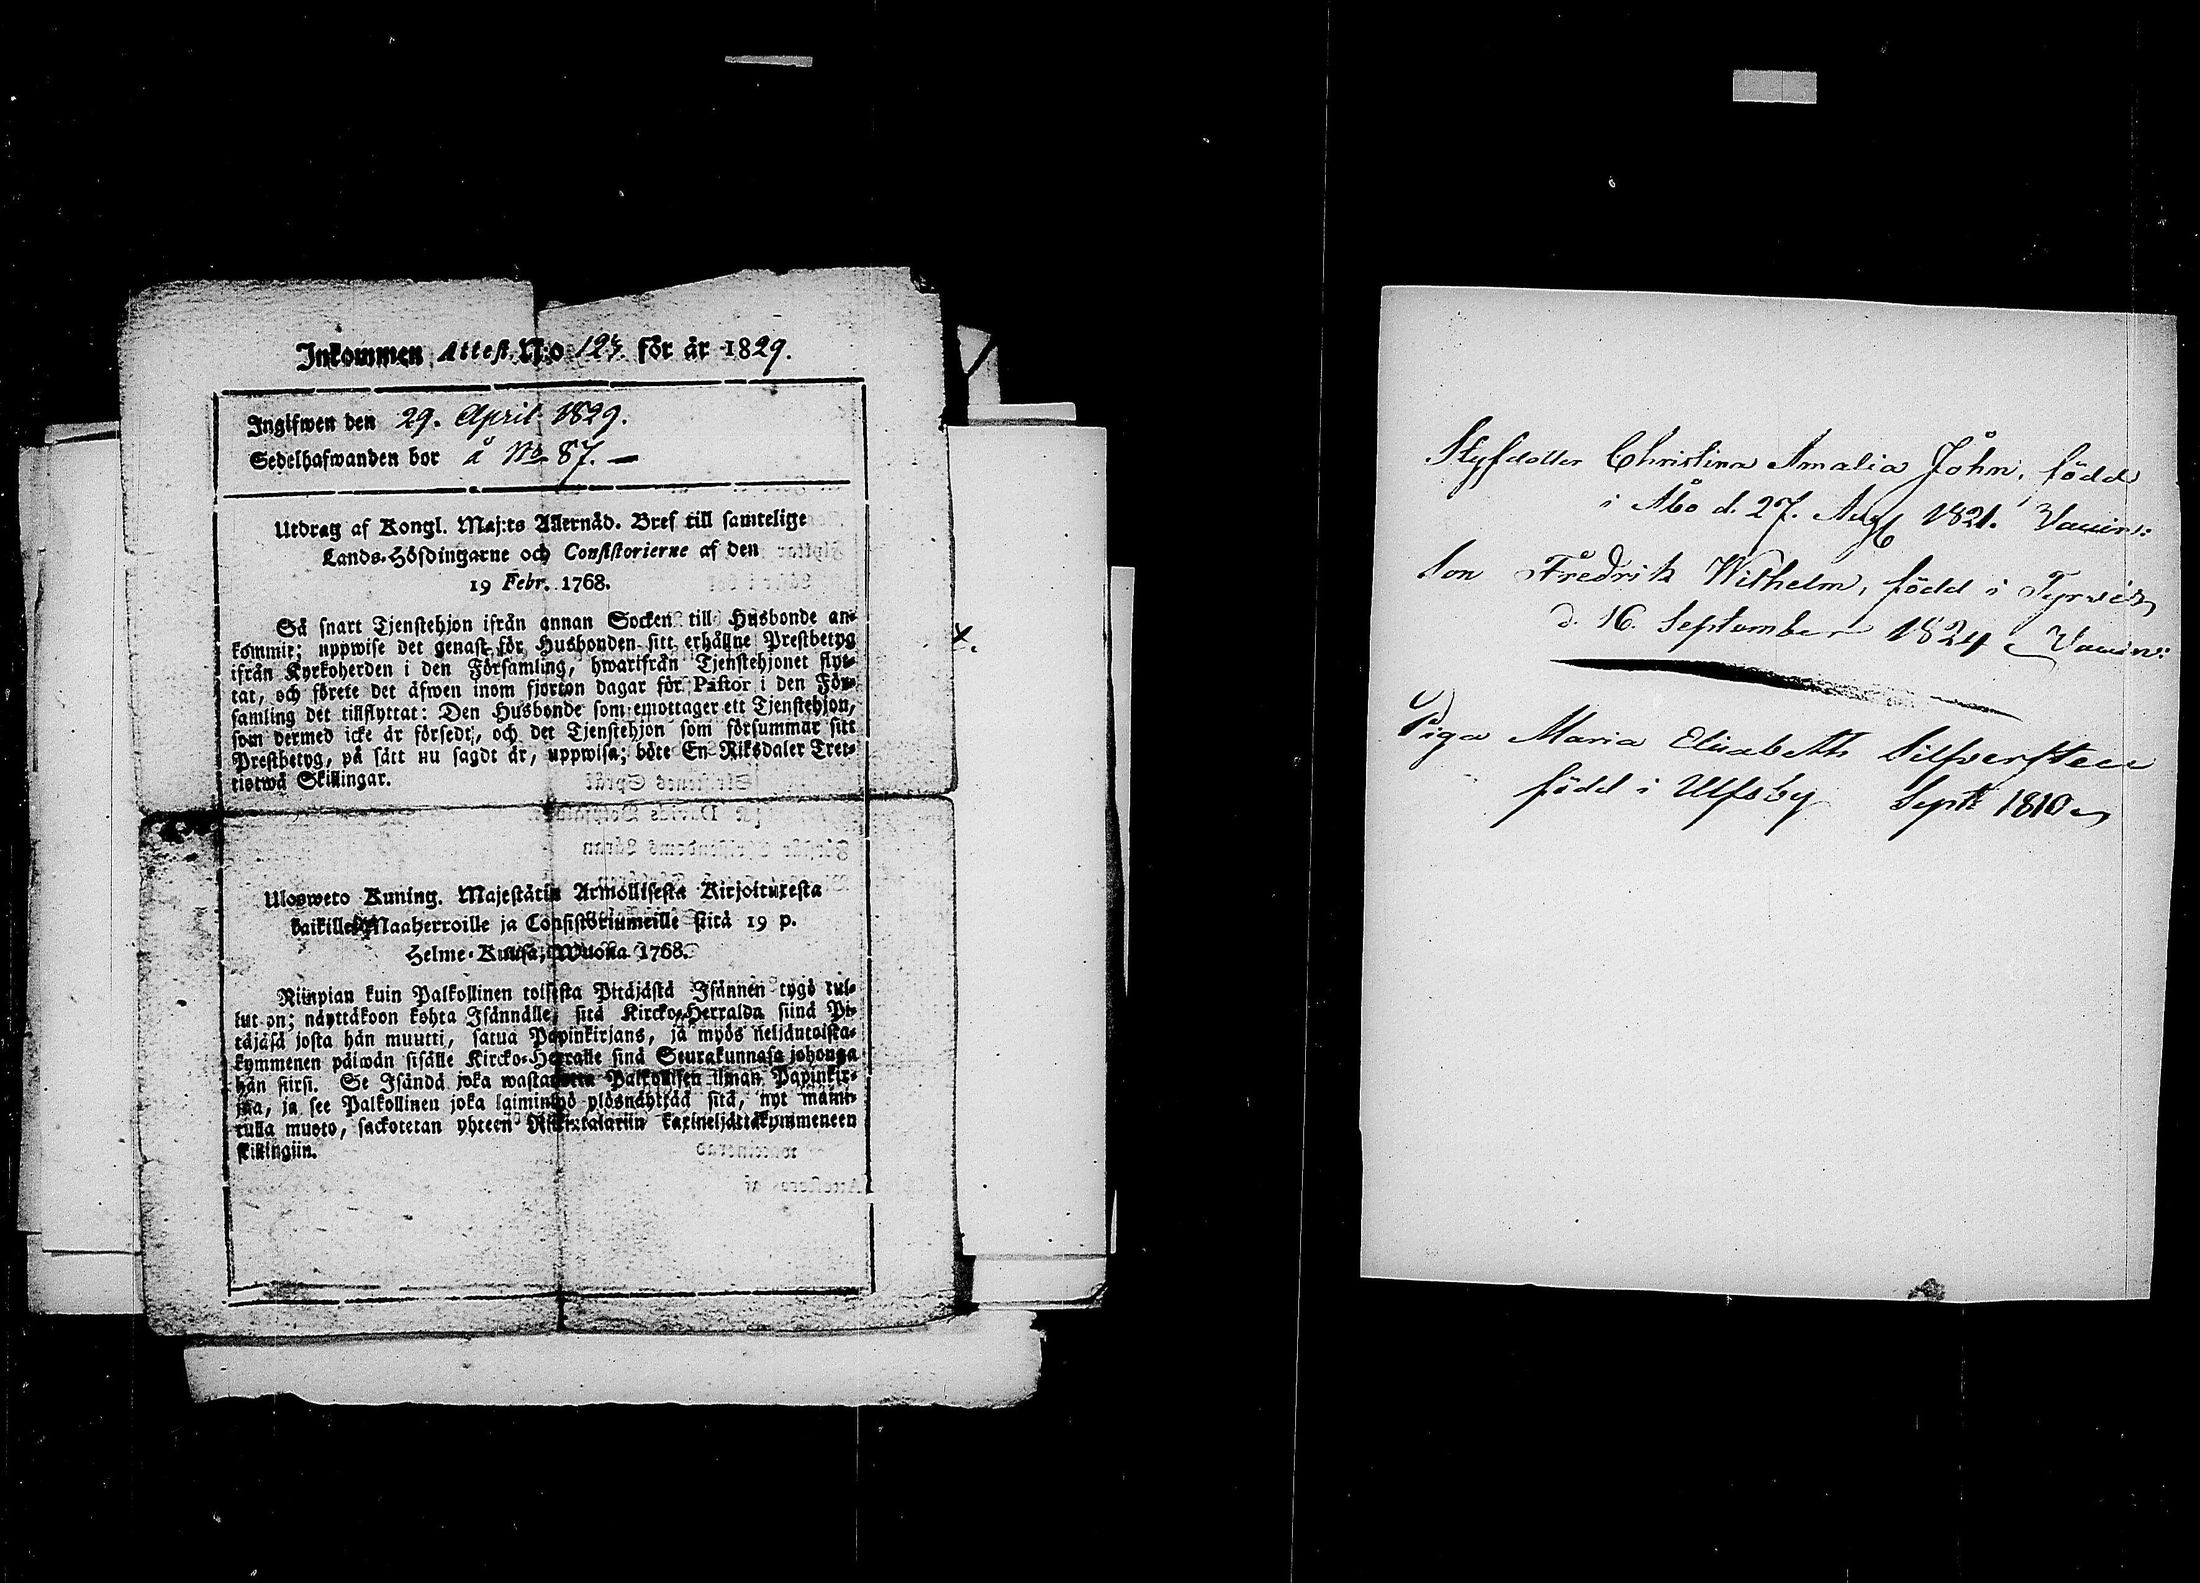 Inkommen Attest. N:o 123. för år 1829.
Ingifwen den 29. April 1829.
Sedelhafwanden bor å No 87. —
Utdrag af Kongl. Maj:ts Allernåd. Bref till samtelige
Lands-Höfdingarne och Consistorierne af den
19 Febr. 1768.
Så snart Tjenstehjon ifrån annan Socken till Husbonde an-
kommit; uppwise det genast för Husbonden sitt erhållne Prestbetyg
ifrån Kyrkoherden i den Församling, hwarifrån Tjenstehjonet flyt-
tat, och förete det äfwen inom fjorton dagar för Pastor i den För-
samling det tillflyttat: Den Husbonde som emottager ett Tjenstehjon,
som dermed icke är försedt, och det Tjenstehjon som försummar sitt
Prestbetyg, på sätt nu sagdt är, uppwisa; böte En Riksdaler Tret-
tiotwå Skillingar.
Ulosweto Kuning. Majestätin Armollisesta Kirjoituxesta
kaikille Maaherroille ja Consistoriumeille siitä 19 p.
Helme-Kuusa, Wuonna 1768.
Riinpian kuin Palkollinen toisesta Pitäjästä Isännen tygö tul-
lut on; näyttäkoon kohta Isännälle, sitä Kircko-Herralda siinä Pi-
täjäsä josta hän muutti, saatua Papinkirjans, ja myös neljäntoista-
kymmenen päiwän sisälle Kircko-Herralle siinä Seurakunnasa johonga
hän siirsi. Se Isändä joka wastaotta Palkollisen ilman Papinkir-
jaa, ja see Palkollinen joka laiminlyö ylösnäyttää sitä, nyt maini-
tulla muoto, sackotetan yhteen Riikintalariin kaxineljättäkymmeneen
skillingiin.
Styfdotter Christina Amalia John, född
i Åbo d. 27. Aug 1821. Vaccin:
Son Fredrik Wilhelm, född i Tyrvis
d. 16. September 1824 Vaccin:
Piga Maria Elisabeth Silfversteen
född i Ulfsby Sept. 1810